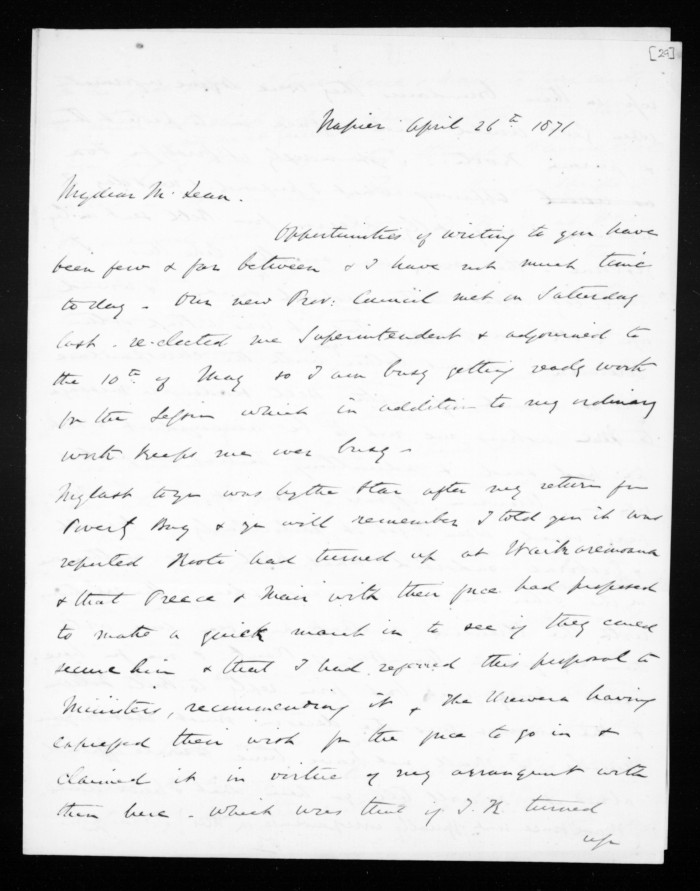 [29]
Napier April 26th 1871
My dear McLean.
Opportunities of writing to you have
been few & far between & I have not much time
to day - Our new Prov: Council met on Saturday
last - re-elected me Superintendent & adjourned to
the 10th of May so I am busy getting ready work
for the Session which in addition to my ordinary
work keeps me over busy -
My last to you was by the Star after my return from
Poverty Bay & you will remember I told you it was
reported Kooti had turned up at Waikaremoana
& that Preece & Mair with their force had proposed
to make a quick march in to see if they could
secure him & that I had referred this proposal to
Ministers, recommending it, the Urewera having
expressed their wish for the force to go in &
claimed it in virtue of my arrangement with
them here - which was that if T. K turned
up